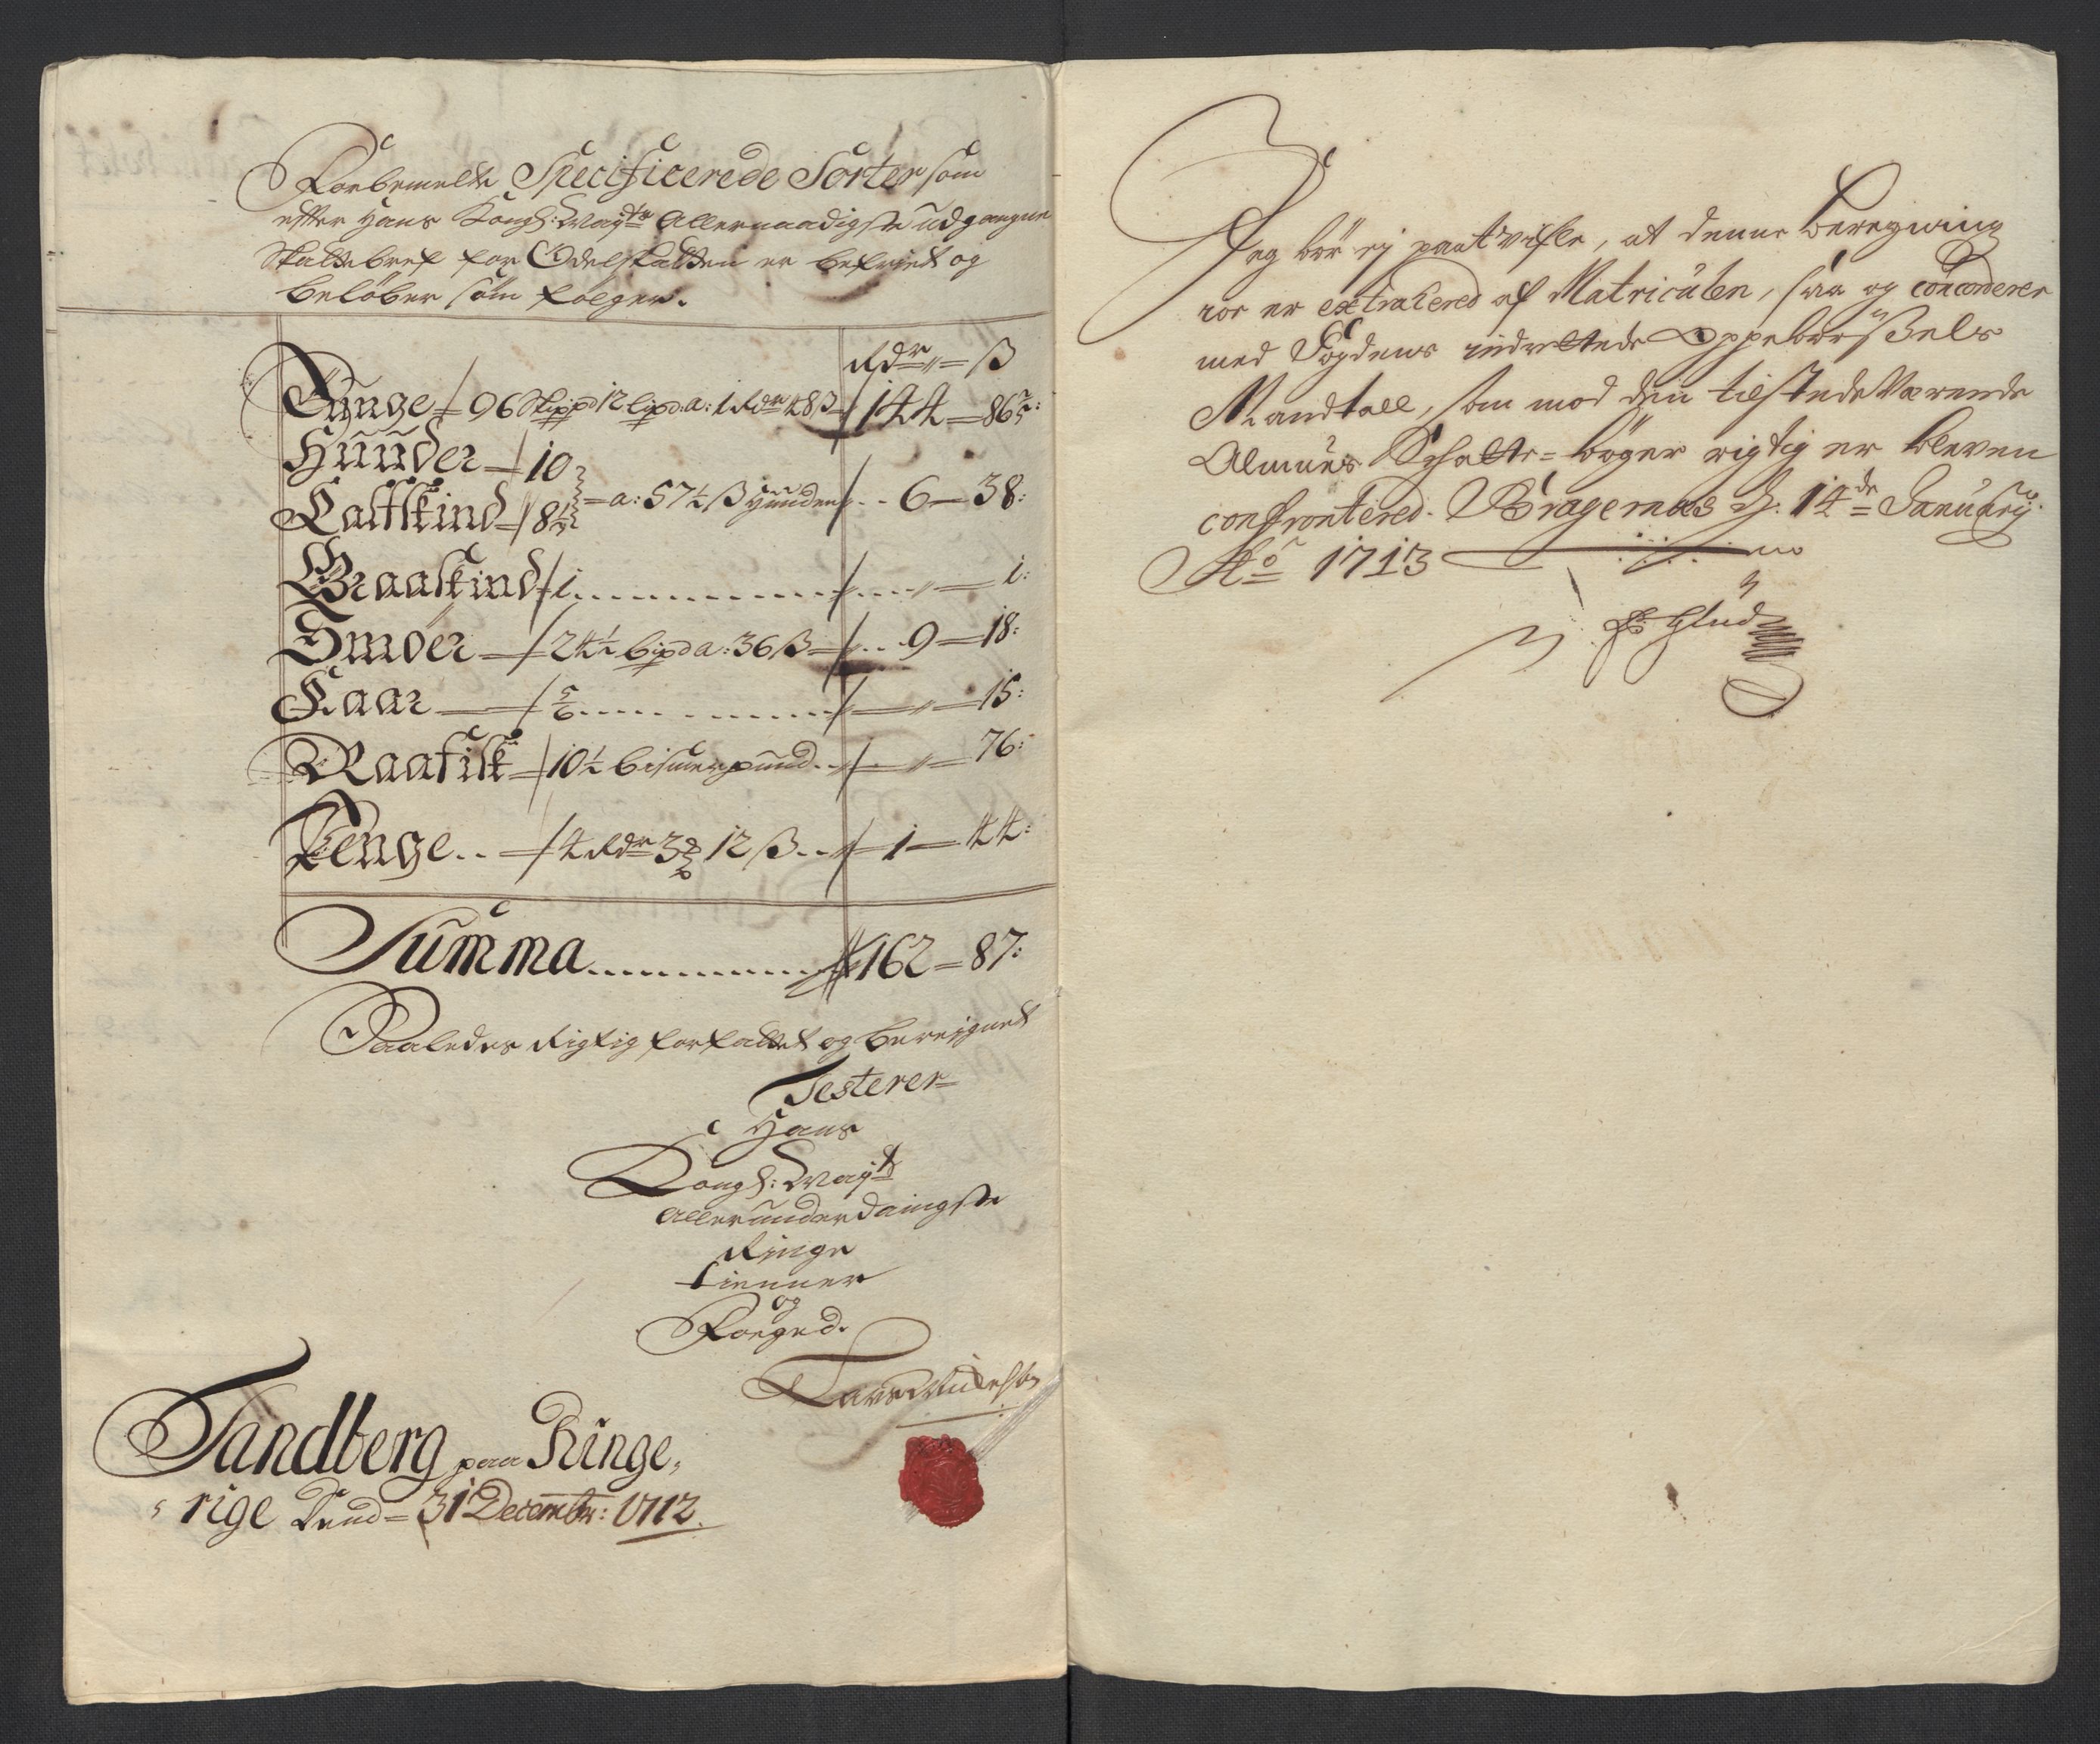 Forbemelte Specificerede Sorter som
efter Hans Kongl: May.ts Allernaadigste udgangne
Skattebref for Odelskatten er befriet og
beløber som følger.
Rdr = ß
Tunge = 96 Skippd 12 lipd a: 1 Rdr 48 ß 144 = 86 2/5:
Huuder 10
Kalfskind 8 1/2 = a: 57 1/2 ß Huuden 6 = 38:
Graaskind 1 1:
Smøer 24 1/2 bipd a: 36 ß 9 = 18:
Faar 5/6 15:
Raafisk 10 1/2 bismerpund 76:
Penge 4 Rdr 3 12 ß 1 = 44:
Summa 162 = 87:
Saaledes Rigtig forfattet og bereignet
Testerer
Hans
Kongl: May.ts
Allerunderdanigste
Ringe
tienner
og
Foeged.
Tandberg paa Ringe,
rige Dend = 31 Decembr: 1712.
Jeg bør ej paatvifle, at denne beregning
jo er extrahered af Matriculen, saa og concorderer
med Fogdens indrettede Oppebørßels
Mandtall, som mod den tilstedeværende
Almues Schatte = bøger rigtig er bleven
confrontered. Bragernæs d: 14de January
Ao 1713